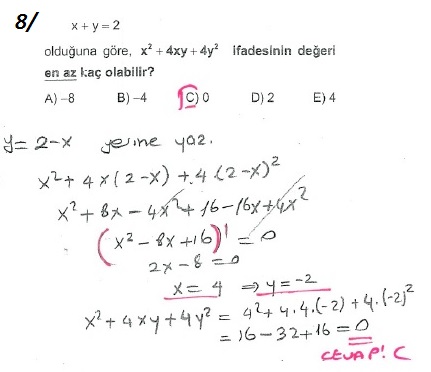 8/ x + y = 2
olduğuna göre, x² + 4xy + 4y² ifadesinin değeri
en az kaç olabilir?
A) –8 B) –4 C) 0 D) 2 E) 4
y = 2 - x yerine yaz.
x² + 4x(2-x) + 4.(2-x)²
x² + 8x - 4x² + 16 - 16x + 4x²
(x² - 8x + 16)' = 0
2x - 8 = 0
x = 4 ⇒ y = -2
x² + 4xy + 4y² = 4² + 4.4.(-2) + 4.(-2)²
= 16 - 32 + 16 = 0
CEVAP! C